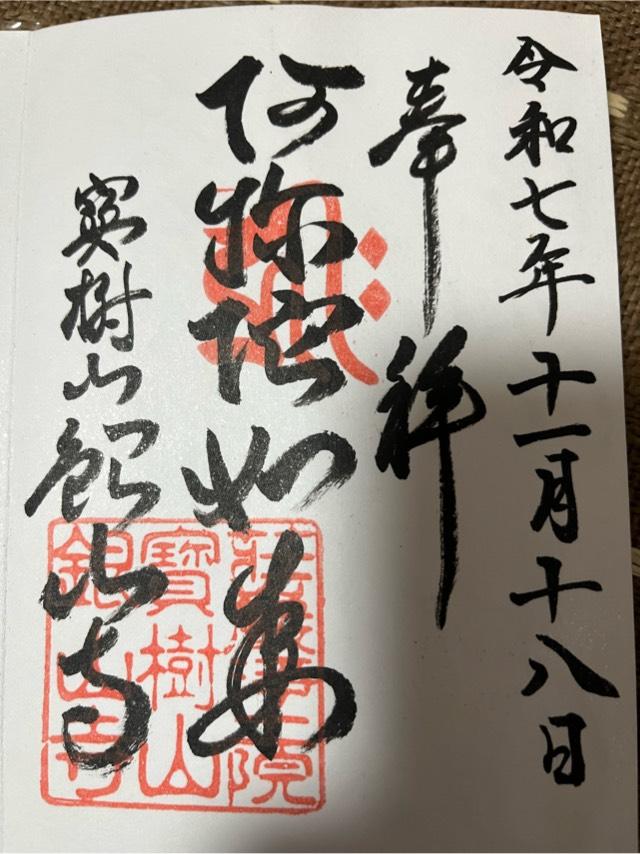 令和七年十一月十八日
奉拝
阿弥陀如来
寳樹山銀山寺
院
寶樹山
銀山寺